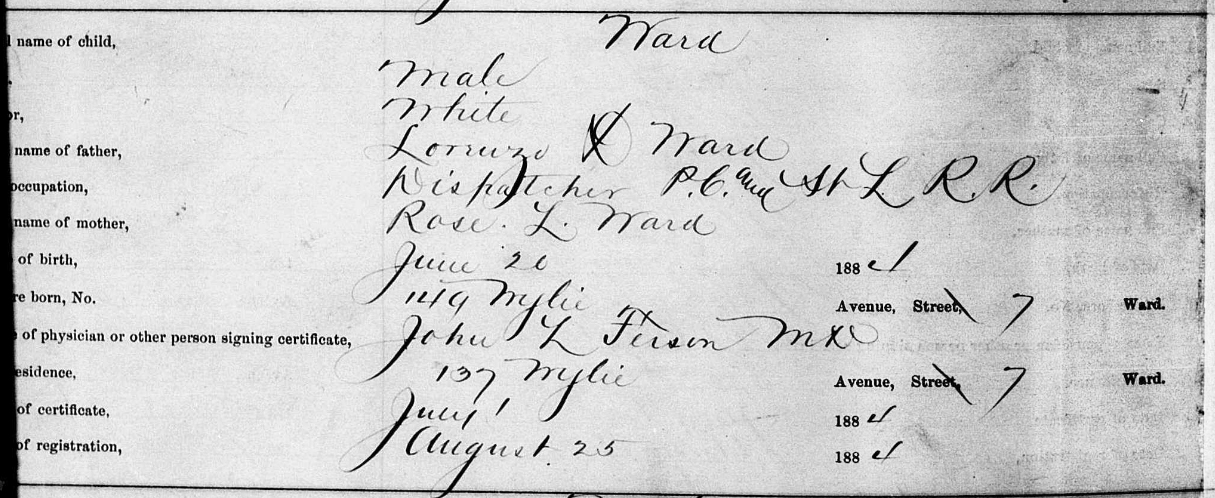 name of child, Ward
Male
or, White
name of father, Lorenzo Ward
occupation, Dispatcher P.C. and St L R.R.
name of mother, Rose. L. Ward
of birth, June 20 1884
re born, No. 149 Wylie Avenue, Street, 7 Ward.
of physician or other person signing certificate, John L Ferson MD
esidence, 137 Wylie Avenue, Street, 7 Ward.
of certificate, July 1 1884
of registration, August 25 1884